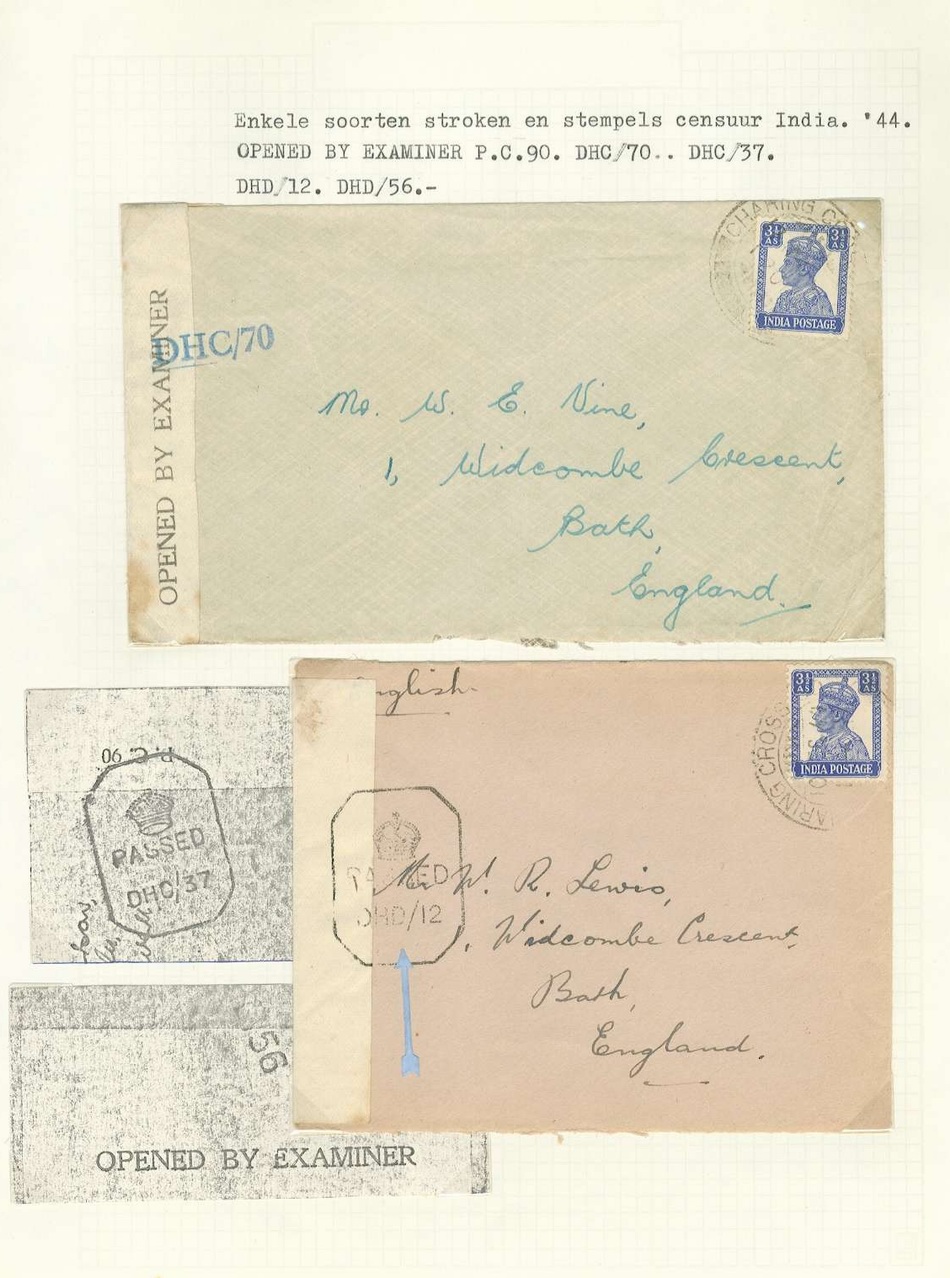 Enkele soorten stroken en stempels censuur India. '44.
OPENED BY EXAMINER P.C.90. DHC/70.. DHC/37.
DHD/12. DHD/56.-
CHARING
3½ AS 3½ AS
INDIA POSTAGE
OPENED BY EXAMINER
DHC/70
Mr. W. E. Vine,
1, Widcombe Crescent,
Bath,
England.
English
3½ AS 3½ AS
INDIA POSTAGE
ARING CROSS
P.C. 90
PASSED
DHC/37
PASSED
DHD/12
Mr W. R. Lewis,
, Widcombe Crescent,
Bath,
England.
56
OPENED BY EXAMINER